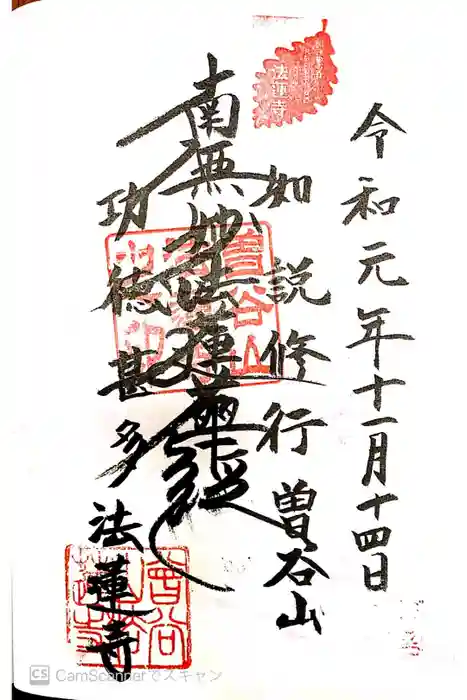 令和元年十一月十四日
如説修行 曽谷山
南無妙法蓮華経
功徳甚多 法蓮寺
法蓮寺
曽谷山
CS CamScannerでスキャン